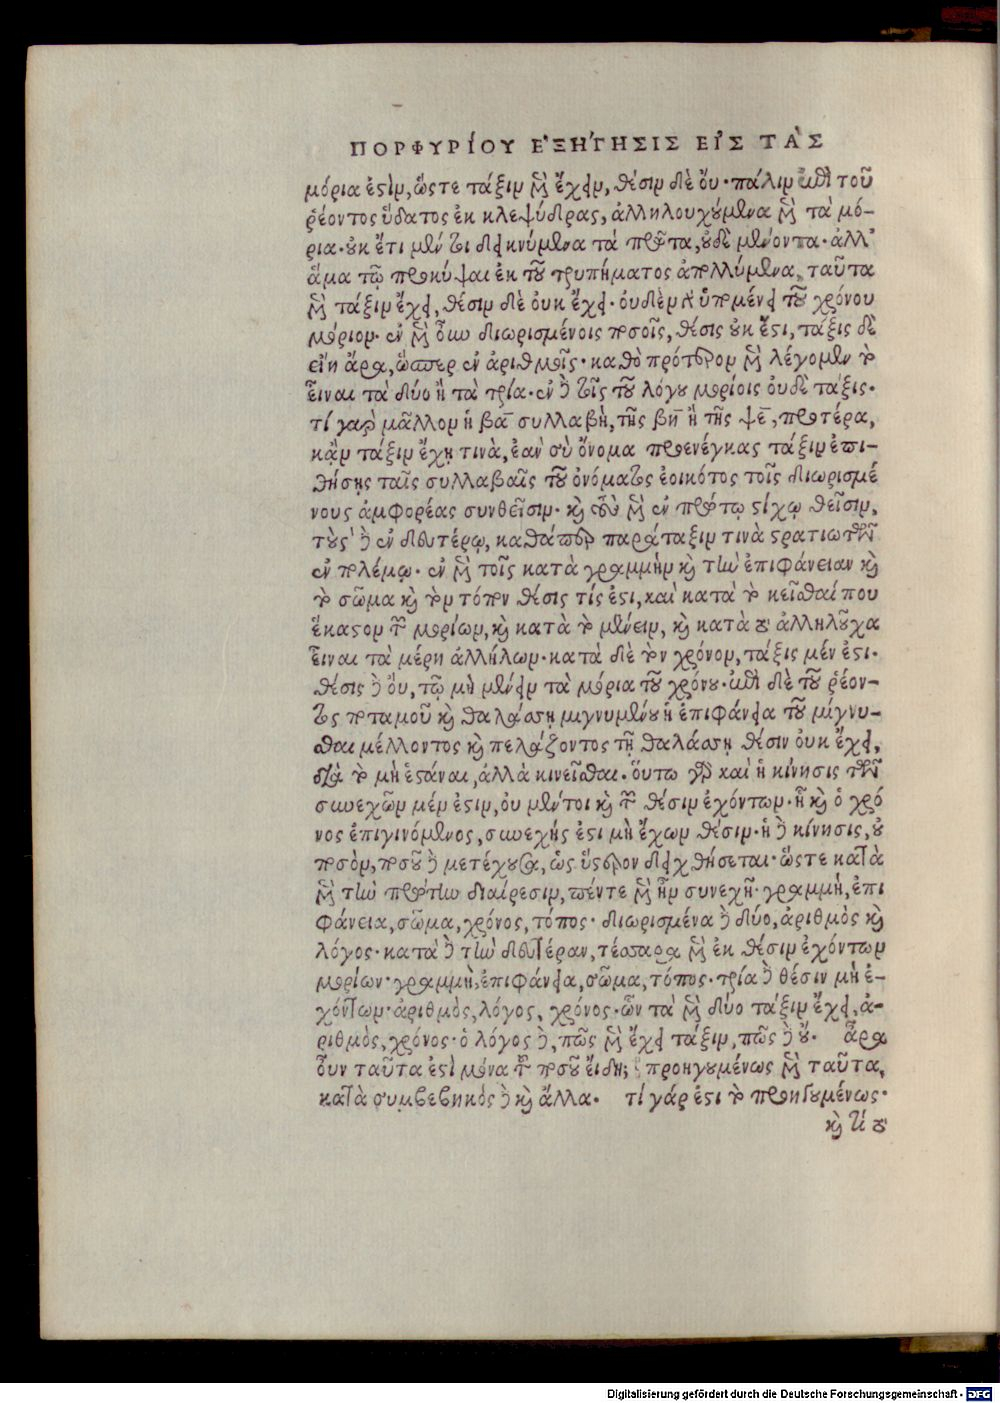 ΠΟΡΦΥΡΙΟΥ ΕἘΞΗΓΗΣΙΣ ΕΙΣ ΤΑΣ
μόρια ἐστὶν, ὥςτε τάξιν μὲν ἔχειν, θέσιν δὲ οὔ· πάλιν ἐπὶ τοῦ
ῥέοντος ὕδατος ἐκ κλεψύδρας, ἀλληλουχούμενα μὲν τὰ μό-
ρια· οὐκ ἔτι μέντοι δεικνύμενα τὰ πρῶτα, οὐδὲ μένοντα· ἀλλ'
ἅμα τῷ προκύψαι ἐκ τοῦ τρυπήματος ἀπολλύμενα, ταῦτα
μὲν τάξιν ἔχει, θέσιν δὲ οὐκ ἔχει· οὐδὲν γὰρ ὑπομένει τοῦ χρόνου
μόριον· ἐν μὲν οὖν διωρισμένοις ποσοῖς, θέσις οὐκ ἔστι, τάξις δὲ
εἴη ἄρα, ὥσπερ ἐν ἀριθμοῖς· καθὸ πρότερον μὲν λέγομεν τὸ
ἓν εἶναι τὰ δύο ἢ τὰ τρία· ἐν δὲ τοῖς τοῦ λόγου μορίοις οὐδὲ τάξις·
τί γὰρ μᾶλλον ἡ βα συλλαβὴ, τῆς βη ἢ τῆς ψε, προτέρα,
κἂν τάξιν ἔχῃ τινὰ, ἐὰν σὺ ὄνομα προενέγκας τάξιν ἐπι-
θήσῃς ταῖς συλλαβαῖς τοῦ ὀνόματος ἐοικότος τοῖς διωρισμέ
νους ἀμφορέας συνθεῖσιν· καὶ οὓς μὲν ἐν πρώτῳ στίχῳ θεῖσιν,
τοὺς δὲ ἐν δευτέρῳ, καθάπερ παράταξιν τινὰ στρατιωτῶν
ἐν πολέμῳ· ἐν μὲν τοῖς κατὰ γραμμὴν καὶ τὴν ἐπιφάνειαν καὶ
τὸ σῶμα καὶ τὸν τόπον θέσις τίς ἐστι, καὶ κατὰ τὸ κεῖσθαί που
ἕκαστον τῶν μορίων, καὶ κατὰ τὸ μένειν, καὶ κατὰ τὸ ἀλληλοῦχα
εἶναι τὰ μέρη ἀλλήλων· κατὰ δὲ τὸν χρόνον, τάξις μέν ἐστι·
θέσις δὲ οὔ, τῷ μὴ μένειν τὰ μόρια τοῦ χρόνου· ἐπὶ δὲ τοῦ ῥέον-
τος ποταμοῦ καὶ θαλάσσῃ μιγνυμένου ἡ ἐπιφάνεια τοῦ μίγνυ-
σθαι μέλλοντος καὶ πελάζοντος τῇ θαλάσσῃ θέσιν οὐκ ἔχει,
διὰ τὸ μὴ ἑστάναι, ἀλλὰ κινεῖσθαι. οὕτω γὰρ καὶ ἡ κίνησις τῶν
συνεχῶν μέν ἐστιν, οὐ μέντοι καὶ τῶν θέσιν ἐχόντων· ᾗ καὶ ὁ χρό
νος ἐπιγινόμενος, συνεχής ἐστι μὴ ἔχων θέσιν· ἡ δὲ κίνησις, οὐ
ποσὸν, ποσοῦ δὲ μετέχουσα, ὡς ὕστερον δειχθήσεται· ὥςτε κατὰ
μὲν τὴν πρώτην διαίρεσιν, πέντε μὲν ἦν συνεχῆ· γραμμὴ, ἐπι
φάνεια, σῶμα, χρόνος, τόπος· διωρισμένα δὲ δύο, ἀριθμὸς καὶ
λόγος· κατὰ δὲ τὴν δευτέραν, τέσσαρα μὲν ἐκ θέσιν ἐχόντων
μορίων· γραμμὴ, ἐπιφάνεια, σῶμα, τόπος· τρία δὲ θέσιν μὴ ἐ-
χόντων· ἀριθμὸς, λόγος, χρόνος· ὧν τὰ μὲν δύο τάξιν ἔχει, ἀ-
ριθμὸς, χρόνος· ὁ λόγος δὲ, πῶς μὲν ἔχει τάξιν, πῶς δὲ οὔ· ἆρα
οὖν ταῦτα ἐστὶ μόνα τῶν ποσοῦ εἴδη; προηγουμένως μὲν ταῦτα,
κατὰ συμβεβηκὸς δὲ καὶ ἄλλα· τί γάρ ἐστι τὸ προηγουμένως·
καὶ τί τὸ
Digitalisierung gefördert durch die Deutsche Forschungsgemeinschaft - DFG